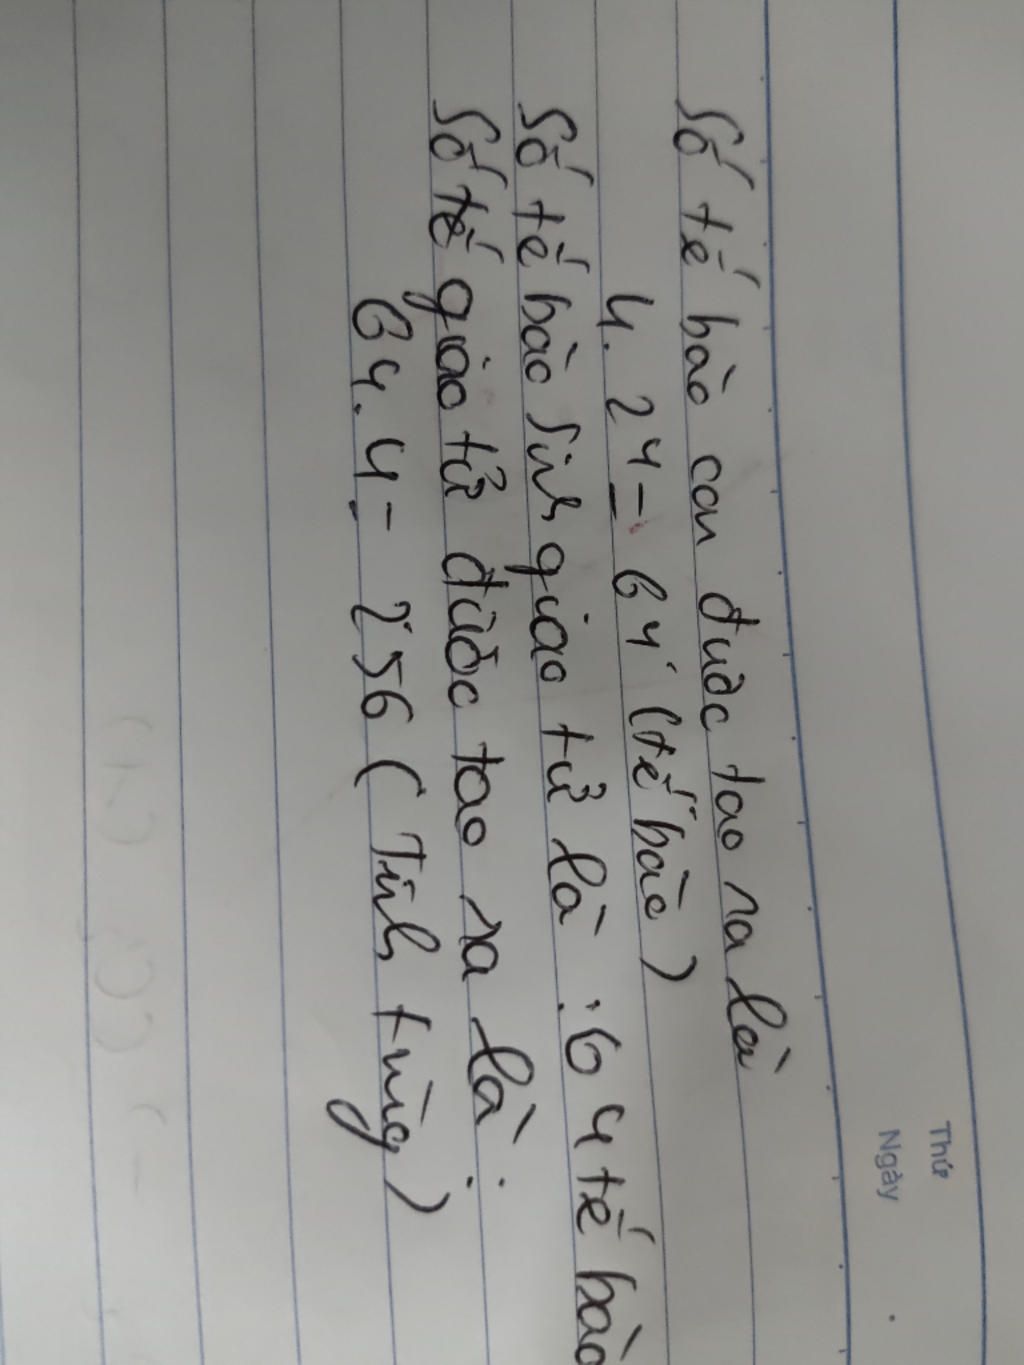 Thứ
Ngày
Số tế bào con được tạo ra là
4. 2⁴ = 64 (tế bào)
Số tế bào sinh giao tử là : 64 tế bào
Số tế giao tử được tạo ra là :
64. 4 = 256 ( Tinh trùng )